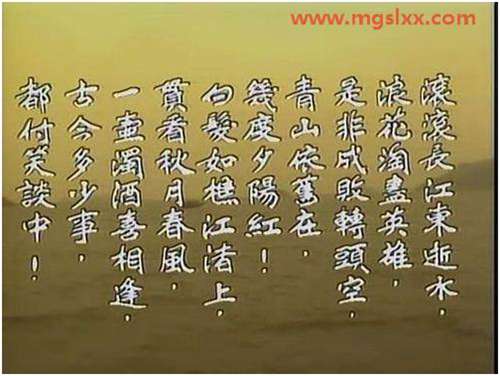 www.mgslxx.com
滾滾長江東逝水，
浪花淘盡英雄，
是非成敗轉頭空，
青山依舊在，
幾度夕陽紅！
白髮如樵江渚上，
貫看秋月春風，
一壺濁酒喜相逢，
古今多少事，
都付笑談中！